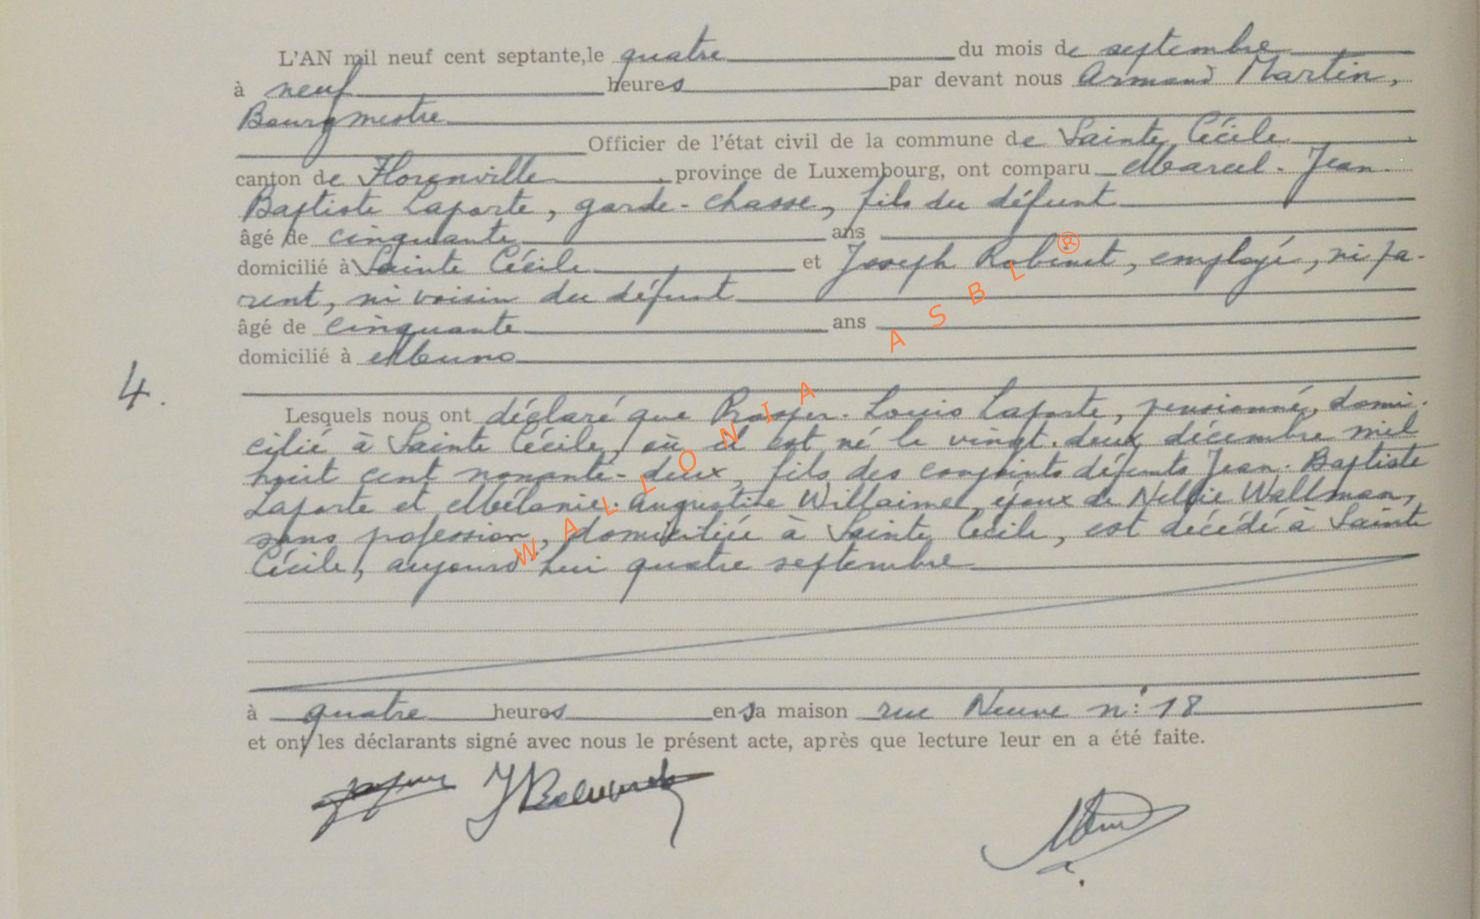 L'AN mil neuf cent septante, le quatre du mois de septembre
à neuf heures par devant nous Armand Martin,
Bourgmestre
Officier de l'état civil de la commune de Sainte Cécile
canton de Florenville, province de Luxembourg, ont comparu Marcel-Jean
Baptiste Laporte, garde-chasse, fils du défunt
âgé de cinquante ans
domicilié à Sainte Cécile et Joseph Robinet, employé, ni pa-
rent, ni voisin du défunt
âgé de cinquante ans
domicilié à Muno
4.
Lesquels nous ont déclaré que Prosper-Louis Laporte, pensionné, domi-
cilié à Sainte Cécile, où il est né le vingt-deux décembre mil
huit cent nonante-deux, fils des conjoints défunts Jean-Baptiste
Laporte et Mélanie-Augustine Willaime, époux de Nellie Wallman,
sans profession, domiciliée à Sainte Cécile, est décédé à Sainte
Cécile, aujourd'hui quatre septembre
à quatre heures en sa maison rue Neuve n° 18
et ont les déclarants signé avec nous le présent acte, après que lecture leur en a été faite.
WALLONIA ASBL ®